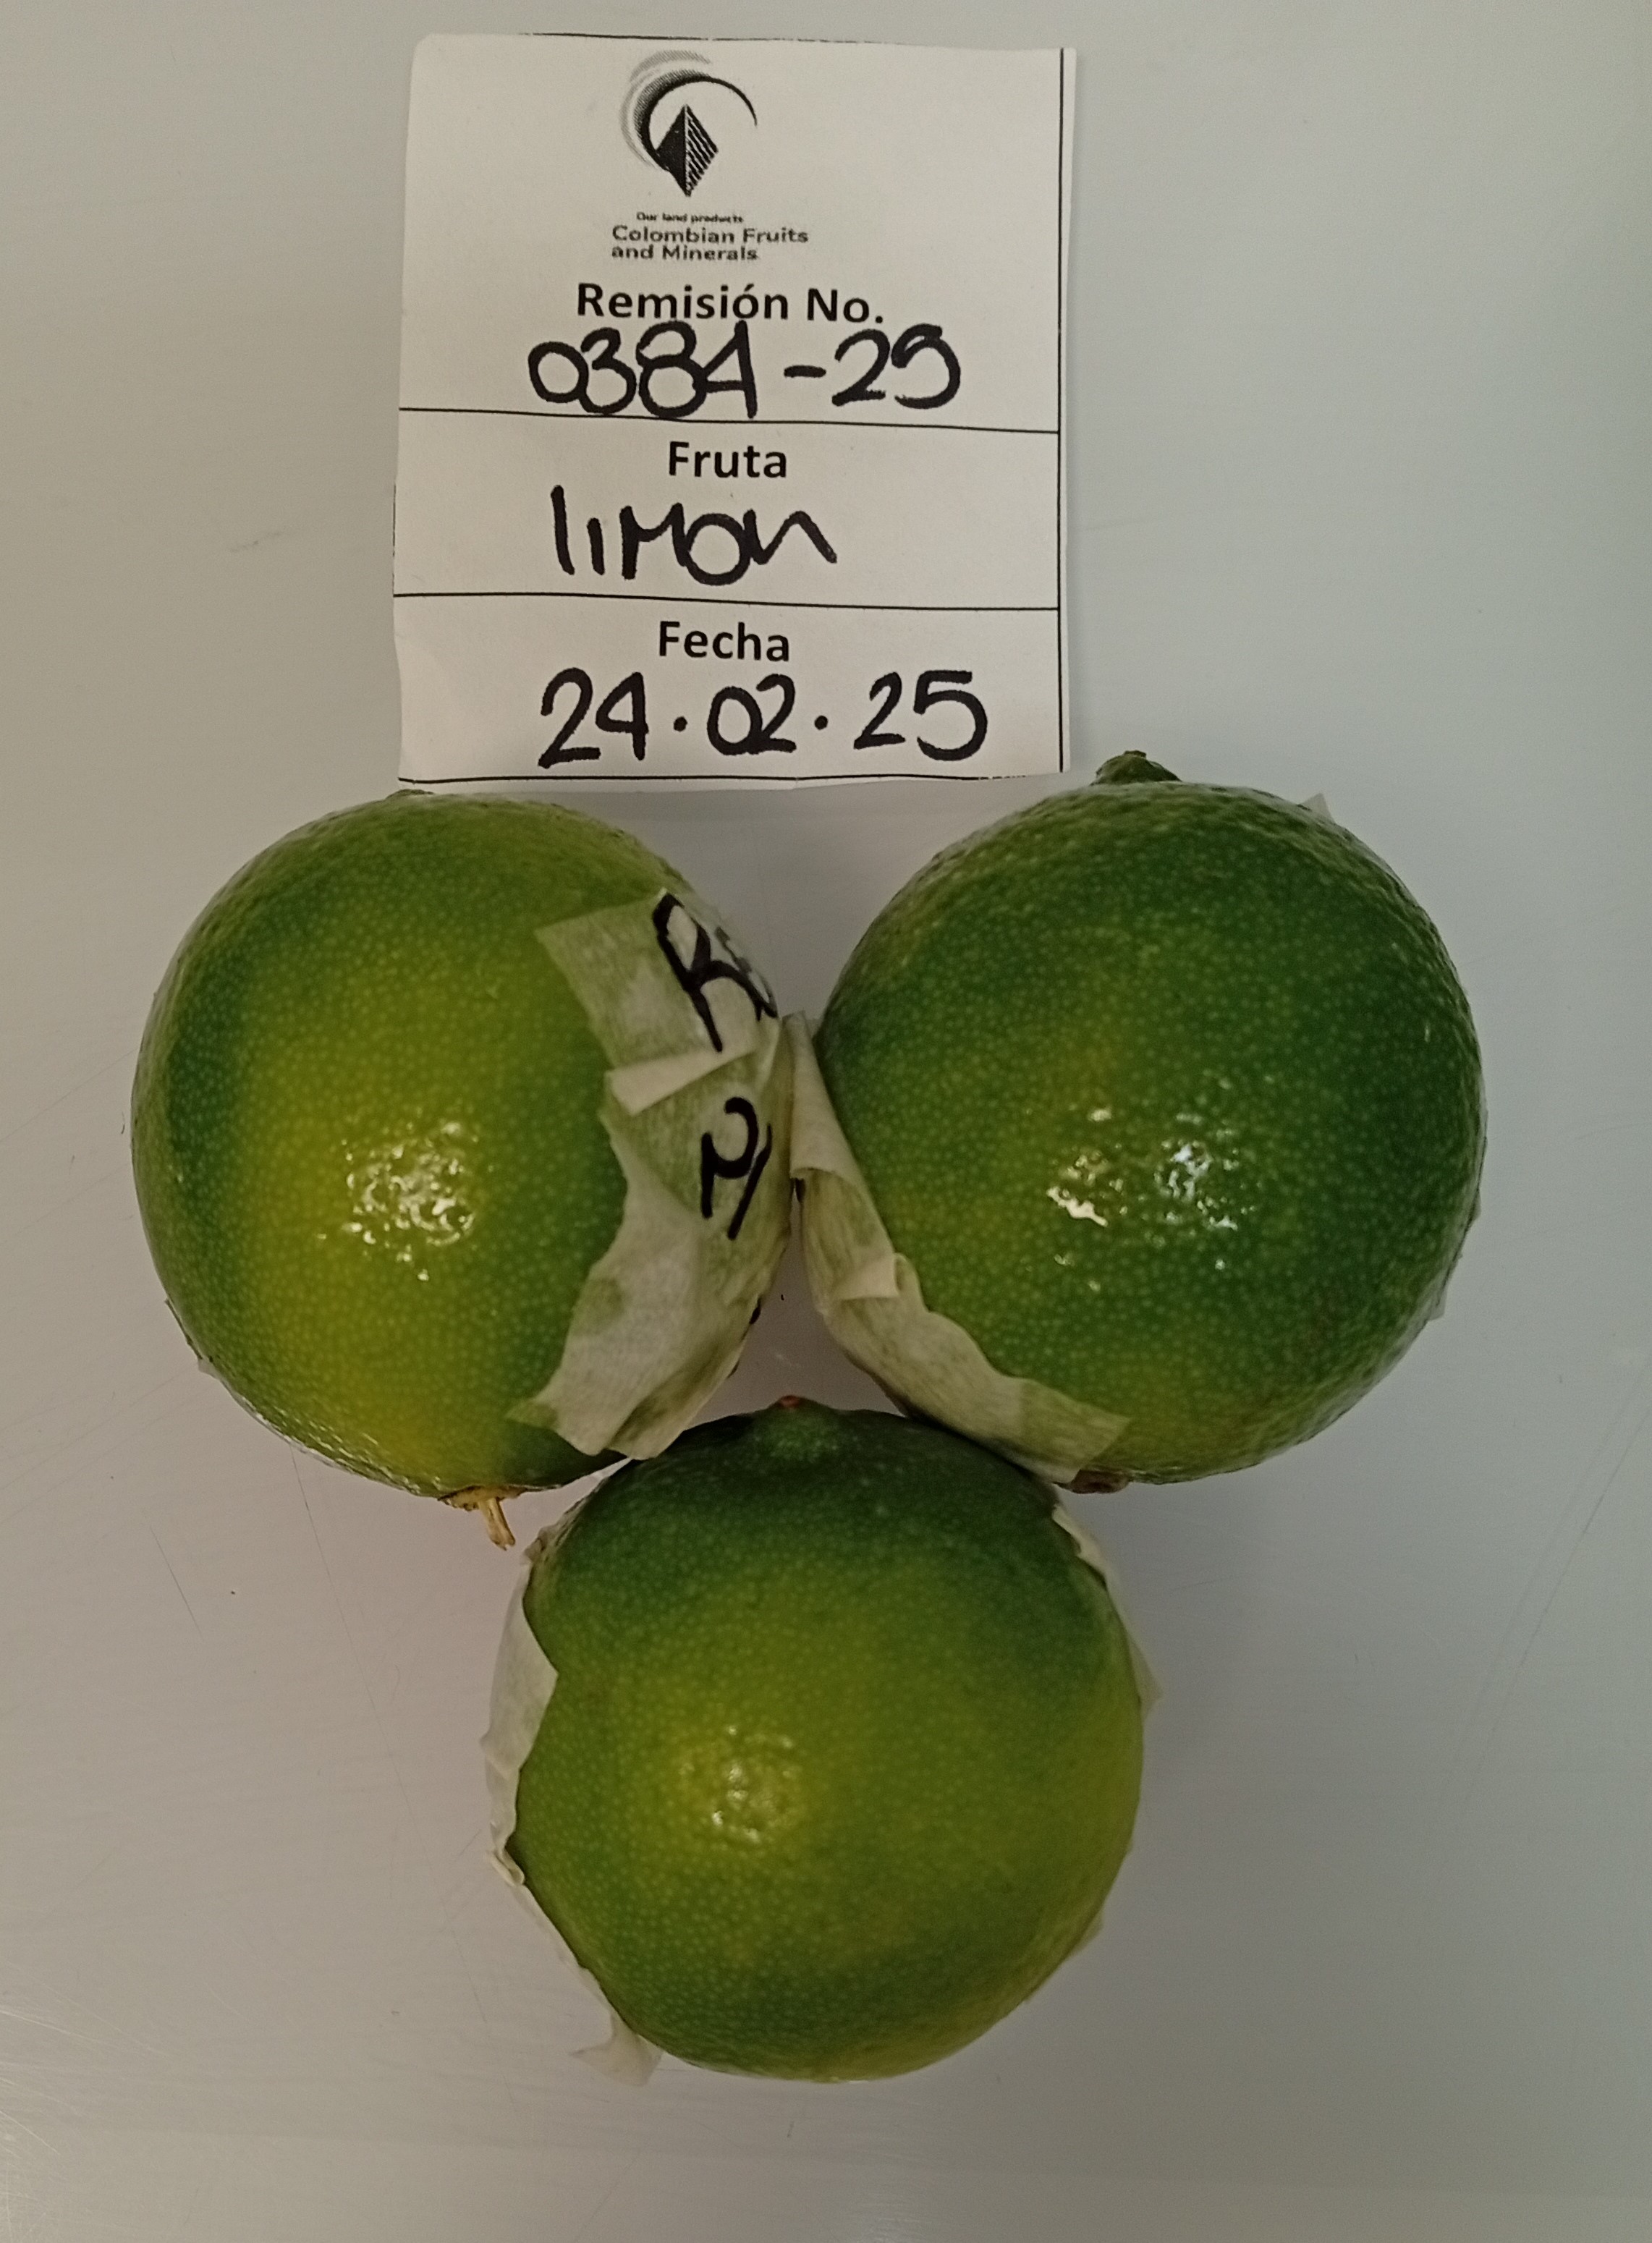 Our land products
Colombian Fruits
and Minerals
Remisión No.
0384-29
Fruta
limon
Fecha
24.02.25